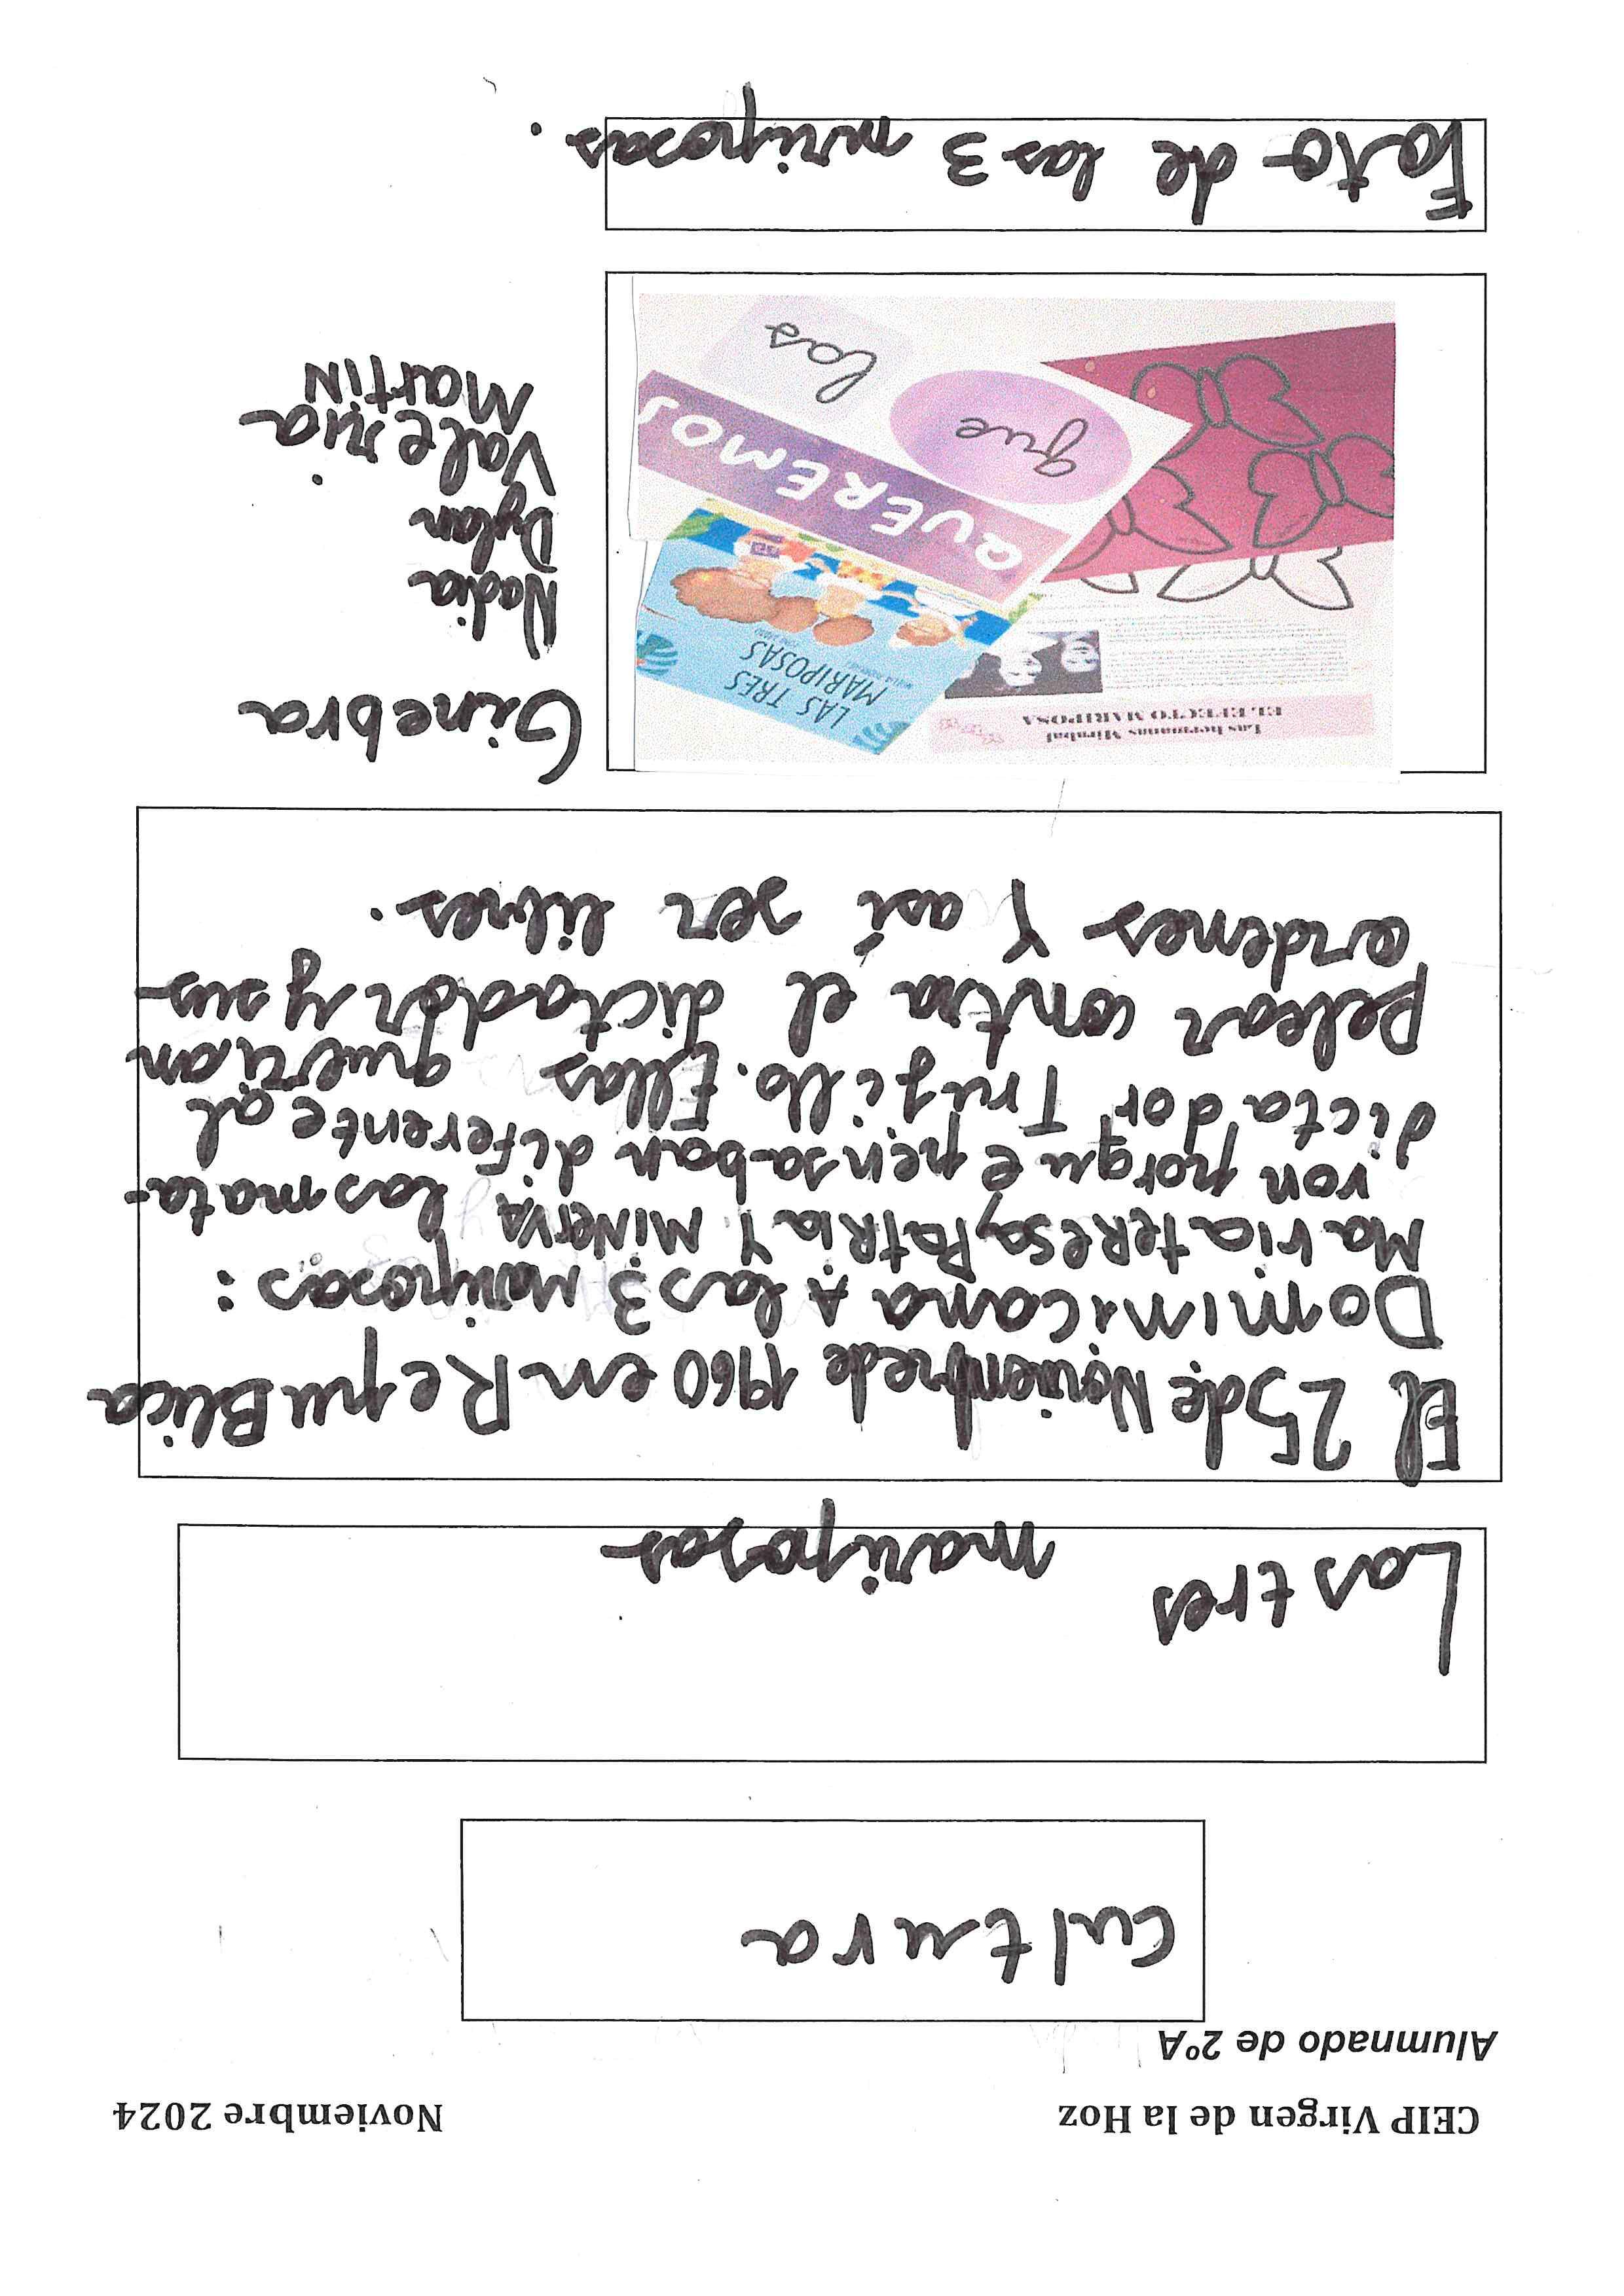 CEIP Virgen de la Hoz
Noviembre 2024
Alumnado de 2ºA
Cultura
Las tres mariposas
El 25 de Noviembre de 1960 en RepuBlica
Dominicana A las 3 Mariposas:
Maria teresa, Patria Y MiNERVA las mata-
ron porque pensaban diferente al
dictador Trujillo. Ellas querian
Pelear contra el dictador y sus
ordenes Y así ser libres.
Las hermanas Mirabal
EL EFECTO MARIPOSA
LAS TRES
MARIPOSAS
QUEREMOS
que
las
Ginebra
Nadia
Dylan
Valeria
MartiN
Foto de las 3 mriposas.